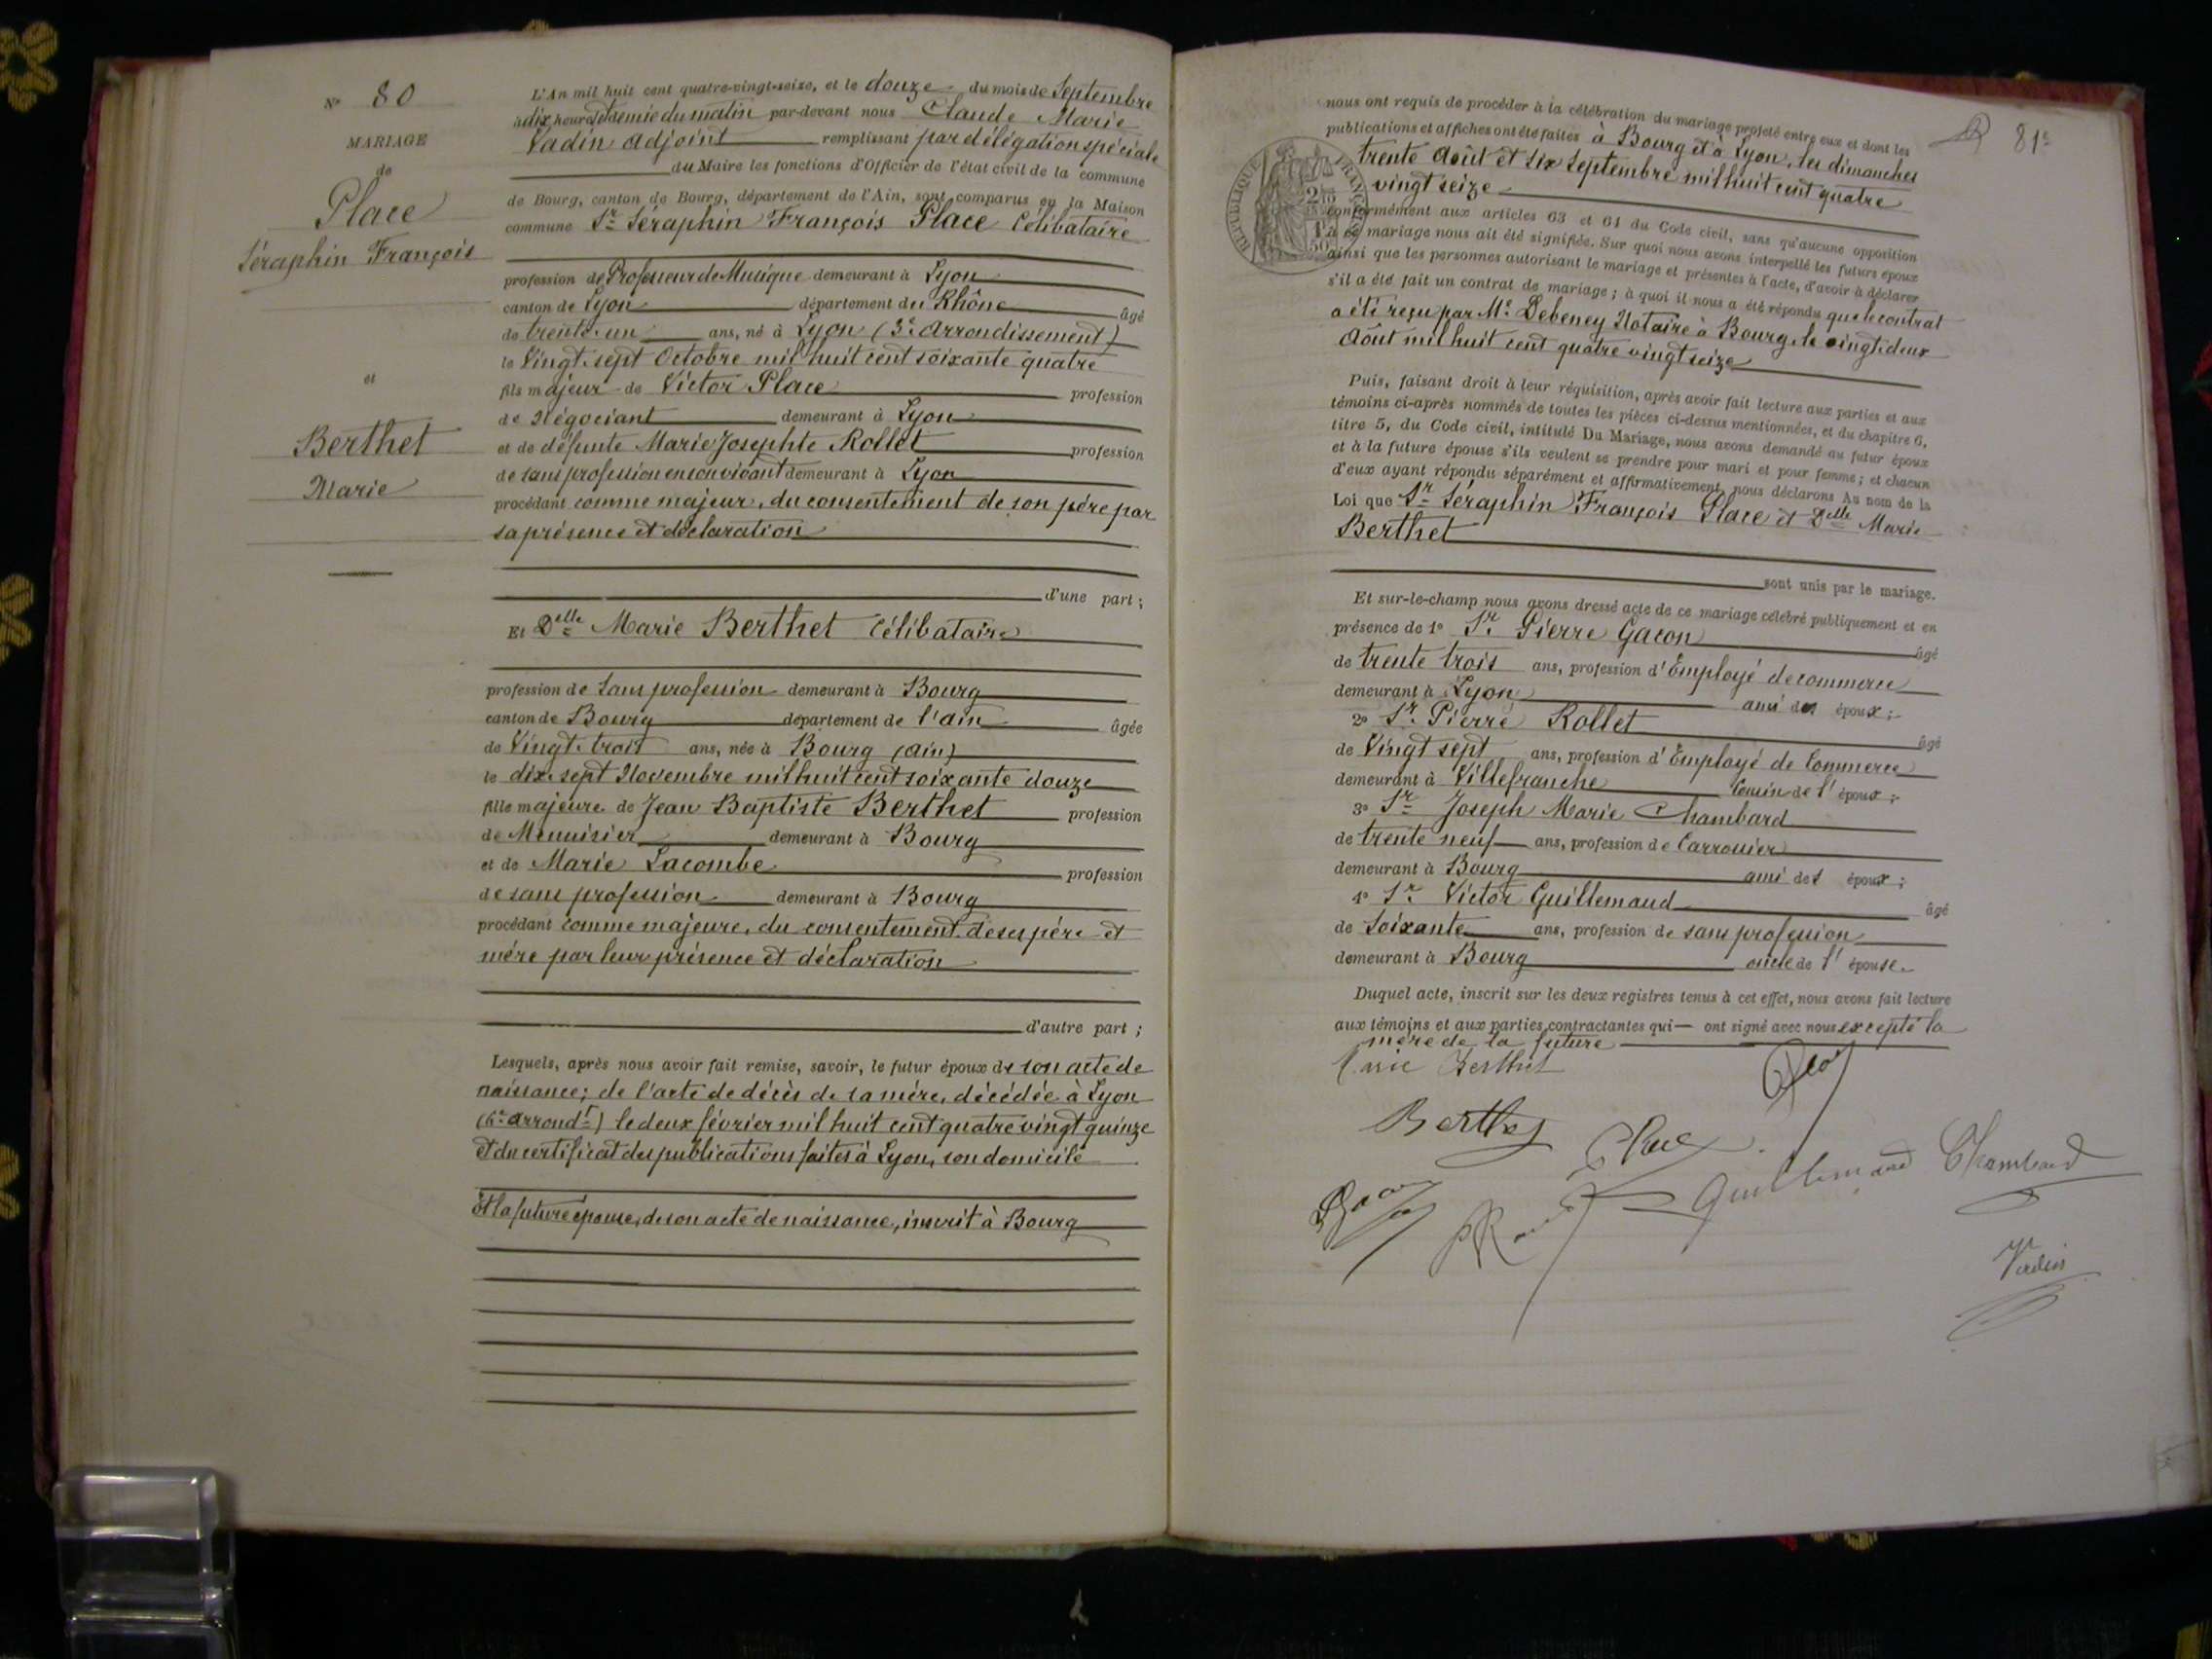 N° 80
MARIAGE
de
Place
Séraphin François
et
Berthet
Marie
L'An mil huit cent quatre-vingt-seize, et le douze du mois de Septembre
à dix heures et demie du matin par-devant nous Claude Marie
Vadin adjoint remplissant par délégation spéciale
du Maire les fonctions d'Officier de l'état civil de la commune
de Bourg, canton de Bourg, département de l'Ain, sont comparus en la Maison
commune Sr Séraphin François Place Célibataire
profession de Professeur de Musique demeurant à Lyon
canton de Lyon département du Rhône âgé
de trente-un ans, né à Lyon (3e Arrondissement)
le Vingt-sept Octobre mil huit cent soixante quatre
fils majeur de Victor Place profession
de Négociant demeurant à Lyon
et de défunte Marie Josephte Rollet profession
de sans profession en son vivant demeurant à Lyon
procédant comme majeur, du consentement de son père par
sa présence et déclaration
d'une part ;
Et Delle Marie Berthet Célibataire
profession de Sans profession demeurant à Bourg
canton de Bourg département de l'ain âgée
de Vingt-trois ans, née à Bourg (ain)
le dix-sept Novembre mil huit cent soixante douze
fille majeure de Jean Baptiste Berthet profession
de Menuisier demeurant à Bourg
et de Marie Lacombe profession
de sans profession demeurant à Bourg
procédant comme majeure, du consentement de ses père et
mère par leur présence et déclaration
d'autre part ;
Lesquels, après nous avoir fait remise, savoir, le futur époux de son acte de
naissance ; de l'acte de décès de sa mère, décédée à Lyon
(6e arrondt) le deux février mil huit cent quatre vingt quinze
et du certificat des publications faites à Lyon, son domicile
Et la future épouse, de son acte de naissance, inscrit à Bourg
81e
nous ont requis de procéder à la célébration du mariage projeté entre eux et dont les
publications et affiches ont été faites à Bourg et à Lyon, les dimanches
trente Août et six Septembre mil huit cent quatre
vingt seize
conformément aux articles 63 et 64 du Code civil, sans qu'aucune opposition
à ce mariage nous ait été signifiée. Sur quoi nous avons interpellé les futurs époux
ainsi que les personnes autorisant le mariage et présentes à l'acte, d'avoir à déclarer
s'il a été fait un contrat de mariage ; à quoi il nous a été répondu que le contrat
a été reçu par Me Debeney Notaire à Bourg, le vingt-deux
Août mil huit cent quatre vingt seize
Puis, faisant droit à leur réquisition, après avoir fait lecture aux parties et aux
témoins ci-après nommés de toutes les pièces ci-dessus mentionnées, et du chapitre 6,
titre 5, du Code civil, intitulé Du Mariage, nous avons demandé au futur époux
et à la future épouse s'ils veulent se prendre pour mari et pour femme ; et chacun
d'eux ayant répondu séparément et affirmativement, nous déclarons Au nom de la
Loi que Sr Séraphin François Place et Delle Marie
Berthet
sont unis par le mariage.
Et sur-le-champ nous avons dressé acte de ce mariage célébré publiquement et en
présence de 1° Sr Pierre Gacon âgé
de trente trois ans, profession d'Employé de commerce
demeurant à Lyon ami des époux ;
2° Sr Pierre Rollet âgé
de Vingt sept ans, profession d'Employé de Commerce
demeurant à Villefranche Cousin de l'époux ;
3° Sr Joseph Marie Chambard
de trente neuf ans, profession de Carrossier
demeurant à Bourg ami des époux ;
4° Sr Victor Guillemaud âgé
de Soixante ans, profession de sans profession
demeurant à Bourg oncle de l'épouse.
Duquel acte, inscrit sur les deux registres tenus à cet effet, nous avons fait lecture
aux témoins et aux parties contractantes qui ont signé avec nous excepté la
mère de la future
Marie Berthet
Berthet
Place
Guillemaud
Chambard
Vadin
RÉPUBLIQUE FRANÇAISE